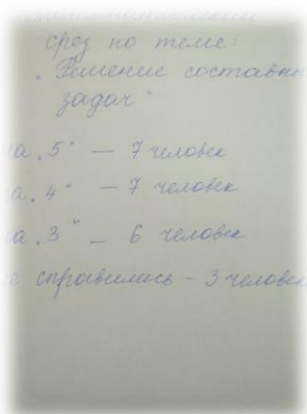 срез по теме:
„Решение составн
задач"
на „5" — 7 человек
на „4" — 7 человек
на „3" — 6 человек
не справились – 3 человек